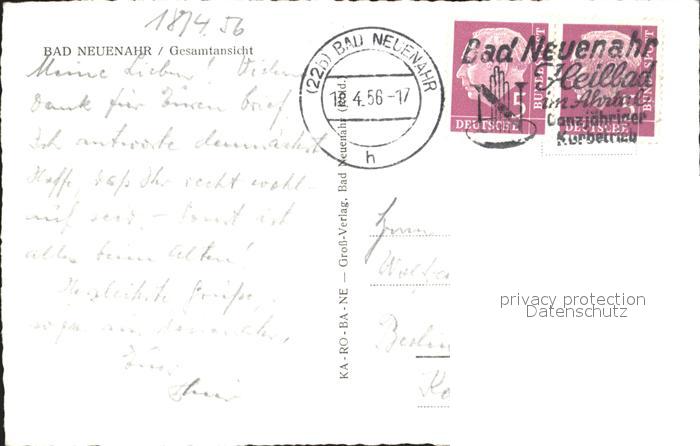 18/4.56
BAD NEUENAHR / Gesamtansicht
Meine Lieben! Vielen
Dank für Euren Brief
Ich antworte demnächst
Hoffe, daß Ihr recht wohl-
auf seid, - sonst ist
alles beim Alten!
Herzlichste Grüße,
Eure
KA-RO-BA-NE — Groß-Verlag, Bad Neuenahr (Rhld.)
(22b) BAD NEUENAHR
18.4.56-17
h
Bad Neuenahr
Heilbad
im Ahrtal
Ganzjähriger
Kurbetrieb
5
DEUTSCHE
BUNDESPOST
DEUTSCHE
BUNDESPOST
Herrn
Berlin
privacy protection
Datenschutz